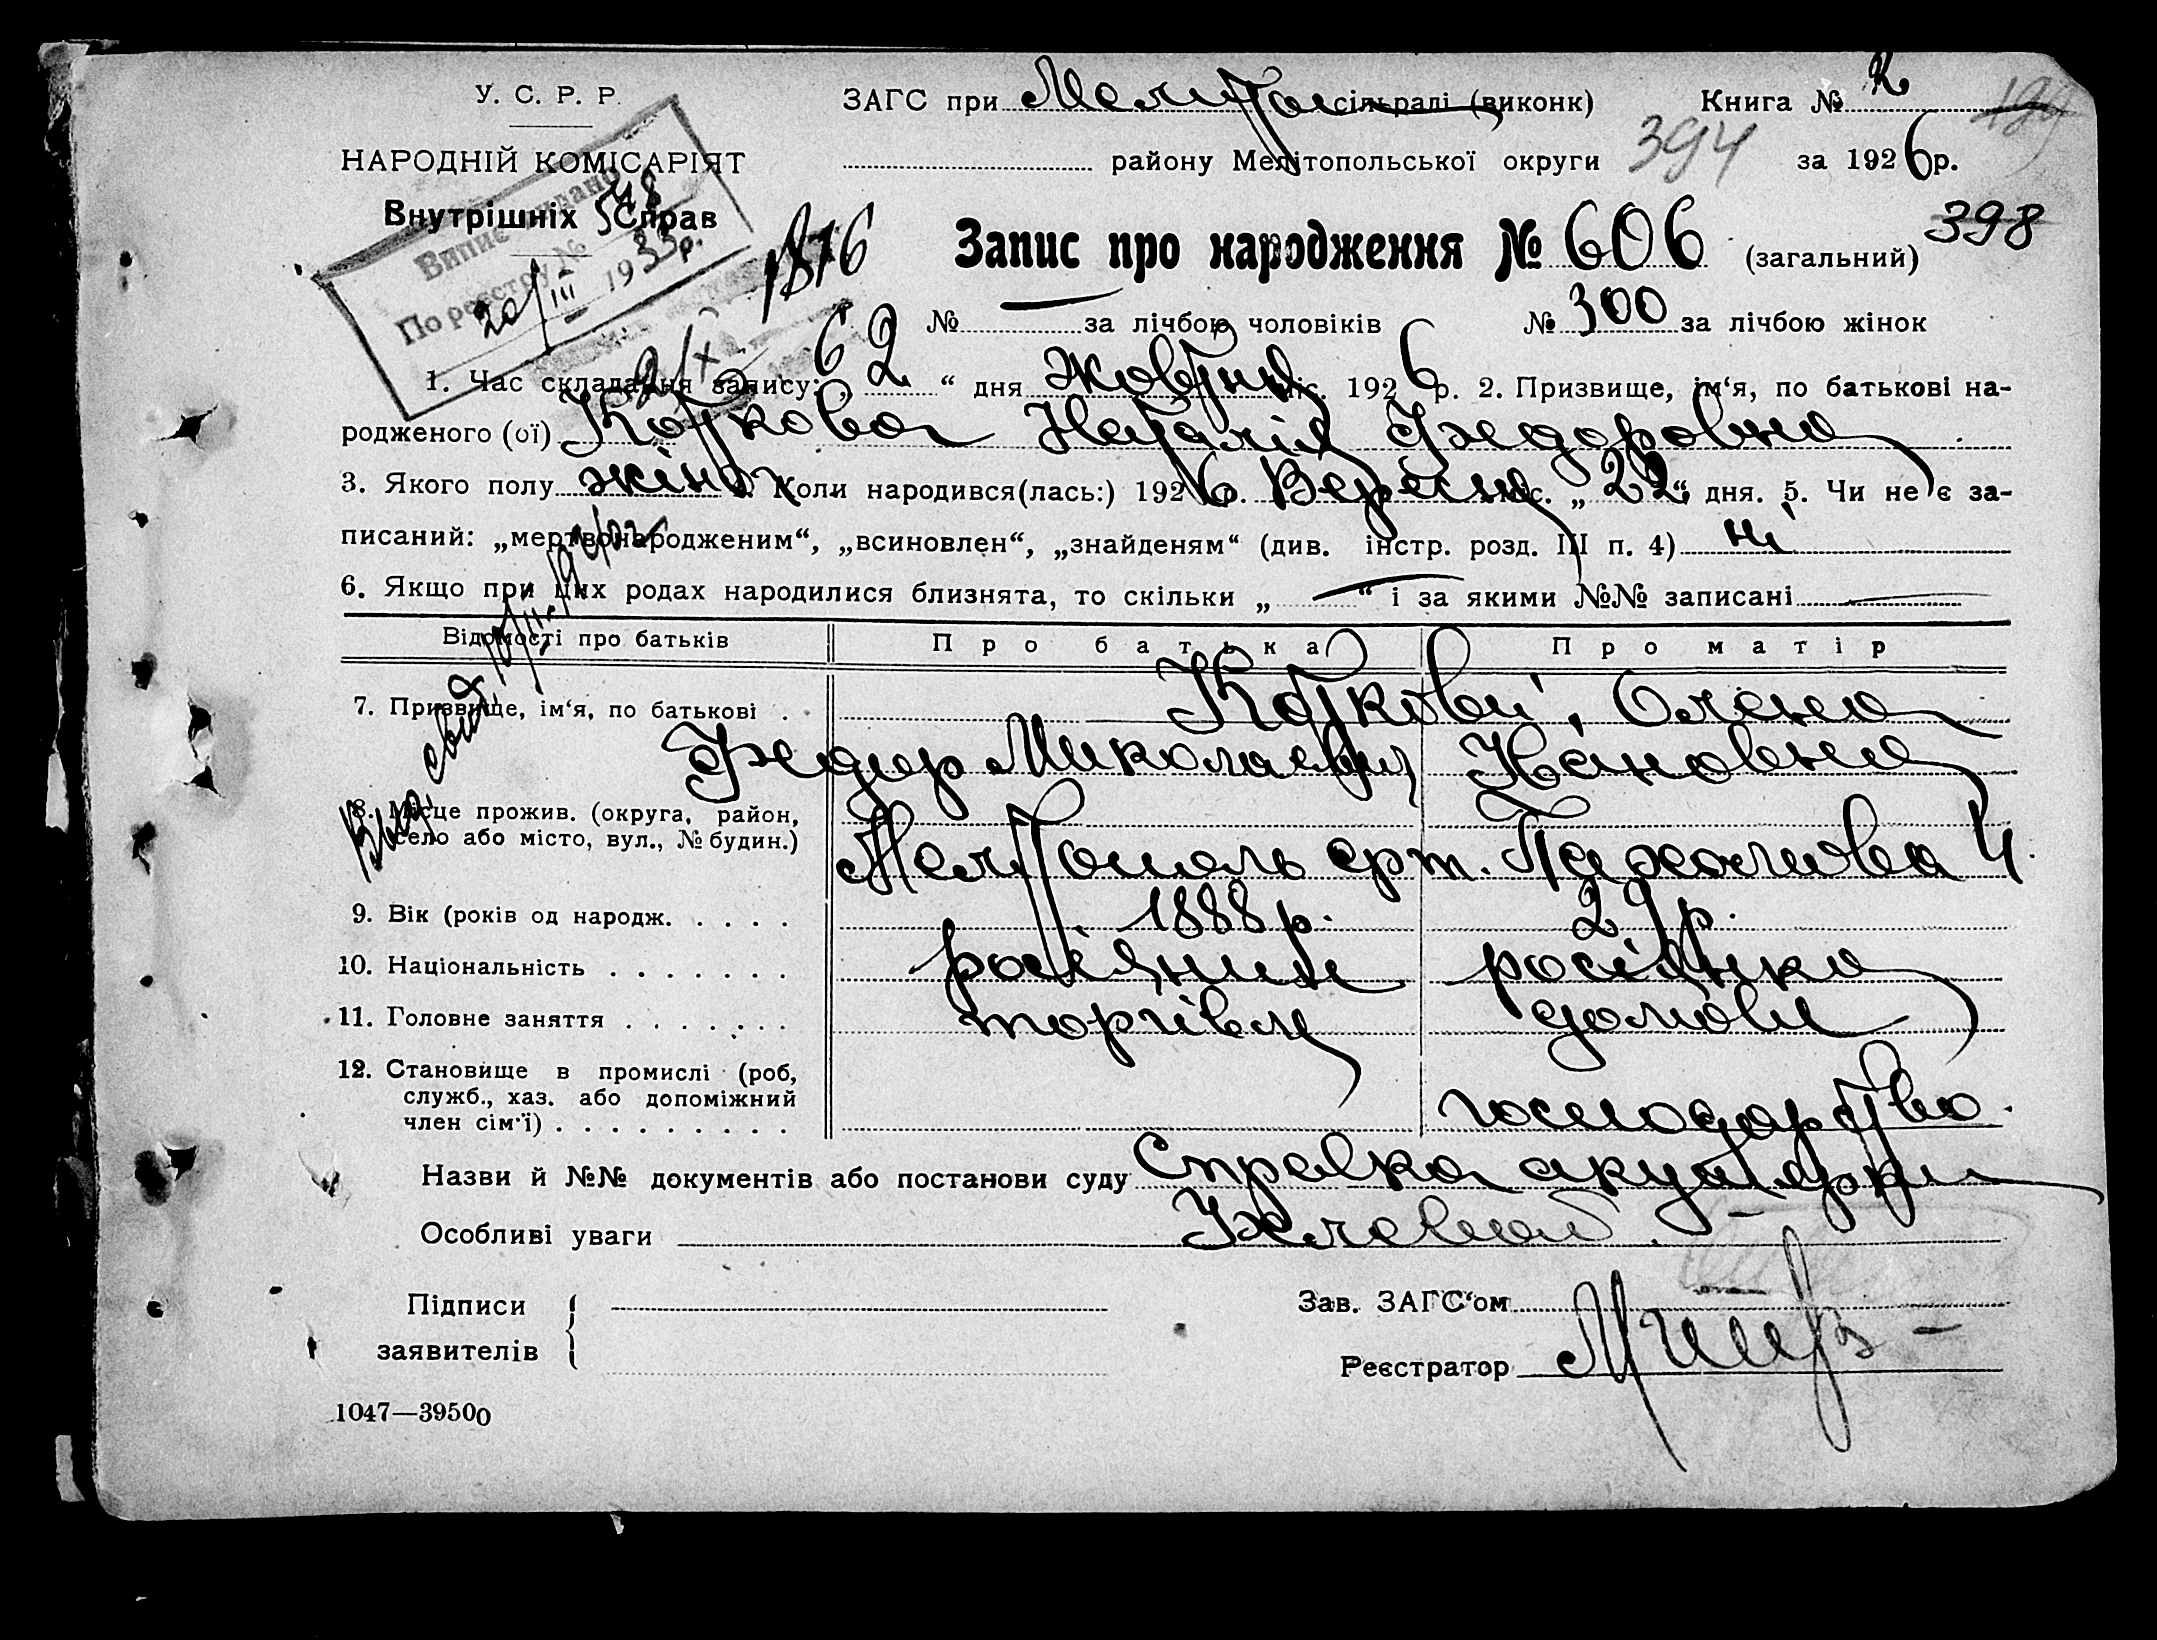 У. С. Р. Р.
НАРОДНІЙ КОМІСАРІЯТ
Внутрішніх Справ
Випис видано
По реєстру № 548
20/III 1933 р.
1876
ЗАГС при Мелітоп сільраді (виконк)
Книга № 2
района Мелітопольської округи 394 за 1926 р.
Запис про народження № 606 (загальний) 398
№ — за лічбою чоловіків № 300 за лічбою жінок
1. Час складання запису: „2“ дня жовтня міс. 1926 р. 2. Призвище, ім‘я, по батькові на-
родженого (ої) Коткова Наталія Федоровна
3. Якого полу жіноч 4. Коли народився(лась:) 1926 р. Вересня міс. „22“ дня. 5. Чи не є за-
писаний: „мертвонародженим“, „всиновлен“, „знайденям“ (див. інстр. розд. III п. 4) ні
6. Якщо при цих родах народилися близнята, то скільки „—“ і за якими №№ записані —
Відомості про батьків Про батька Про матір
7. Призвище, ім‘я, по батькові . Коткови, Олена
Федор Миколаевич Ивановна
8. Місце прожив. (округа, район,
село або місто, вул., № будин.)
Мелітополь арт. Пахалиова 4.
9. Вік (років од народж. . . . . 1888 р. 29 р.
10. Національність . . . . . . . росіянин росіянка
11. Головне заняття . . . . . . . торгівля домове
12. Становище в промислі (роб,
служб., хаз. або допоміжний
член сім‘ї) . . . . . . . . . господарство.
Назви й №№ документів або постанови суду Справка акушерки
Особливі уваги
Підписи
заявителів
Зав. ЗАГС‘ом
Реєстратор
1047—39500